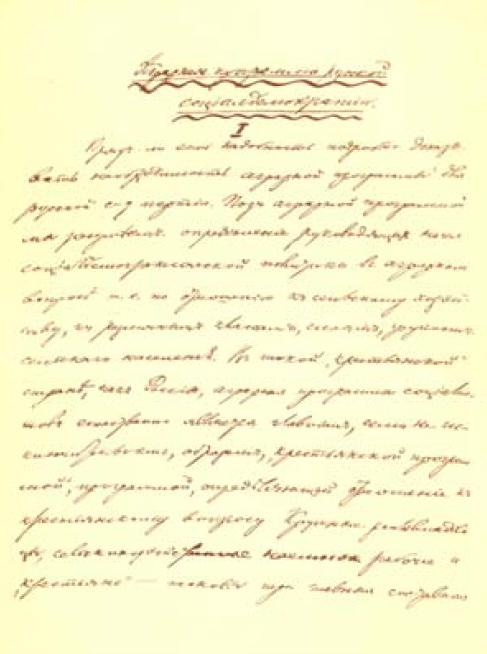 Аграрная программа русской
социалдемократии.
I
Вряд ли есть надобность подробно доказы-
вать необходимость аграрной программы для
русской с.д. партии. Под аграрной программой
мы разумеем определение руководящих начал
социалдемократической политики в аграрном
вопросе т.е. по отношению к сельскому хозяй-
ству, к различным классам, слоям, группам
сельского населения. В такой „крестьянской"
стране, как Россия, аграрная программа социали-
стов естественно является главным, если не ис-
ключительным, образом, „крестьянской програм-
мой", программой, определяющей отношение к
крестьянскому вопросу. Крупные землевладель-
цы, сельскохозяйственные наемные рабочие и
„крестьяне" — таковы три главные составные